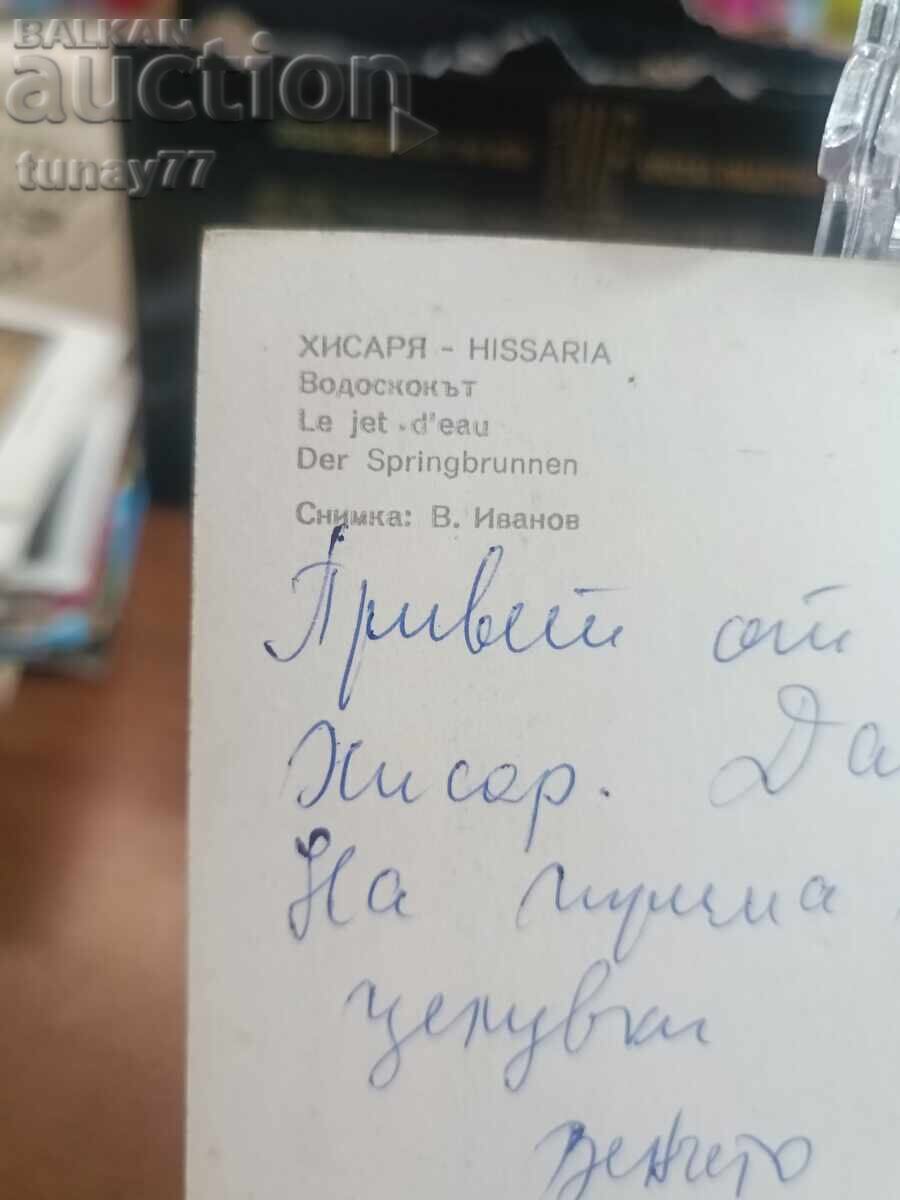 BALKAN
auction
tunay77
ХИСАРЯ - HISSARIA
Водоскокът
Le jet d'eau
Der Springbrunnen
Снимка: В. Иванов
Привет от
Хисар. Да
На
целувки
Венчето